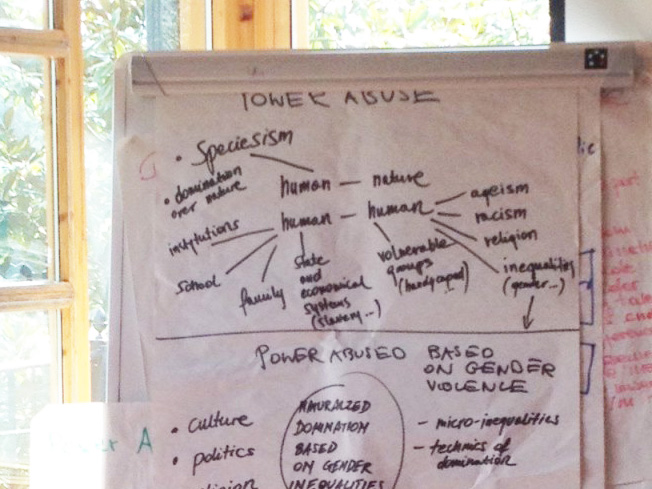 POWER ABUSE
• Speciesism
• domination
over nature
human — nature
human — human
ageism
racism
religion
inequalities
(gender...)
institutions
school
family
state
and
economical
systems
(slavery...)
vulnerable
groups
(handycaped)
POWER ABUSED BASED
ON GENDER
VIOLENCE
• culture
• politics
NATURALIZED
DOMINATION
BASED
ON GENDER
INEQUALITIES
– micro-inequalities
– technics of
domination
A